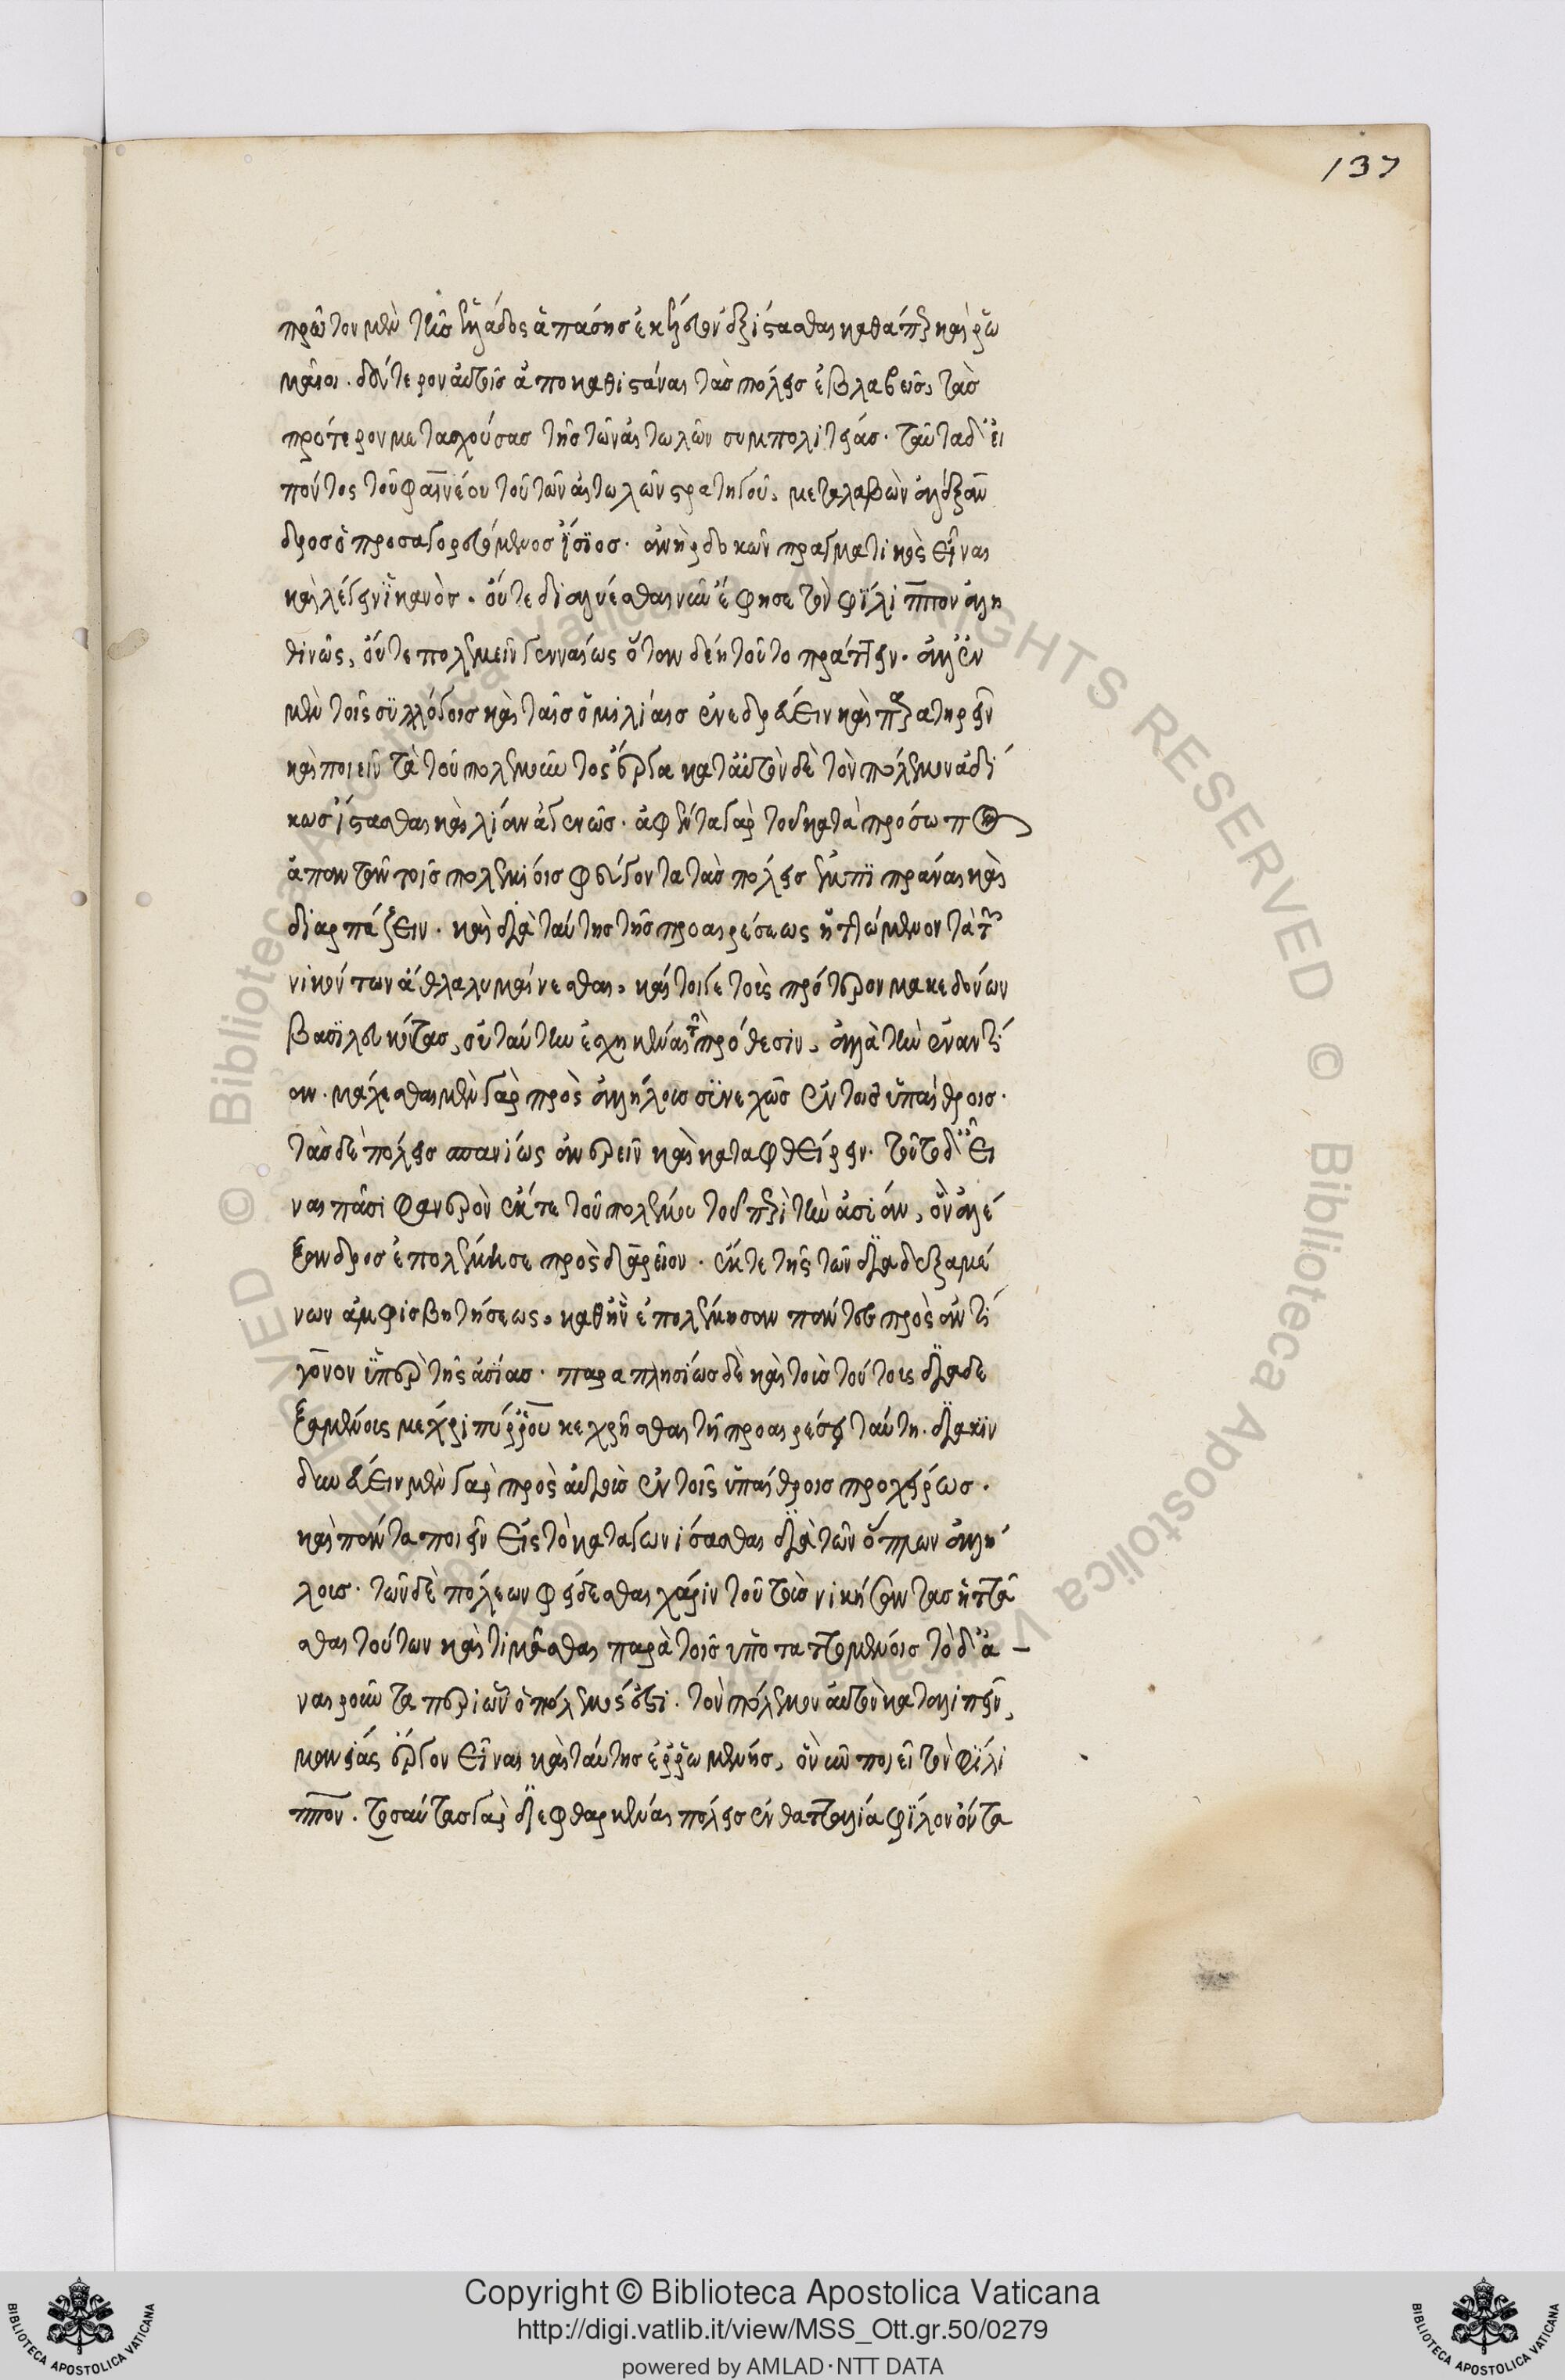 137
πρῶτον μὲν τῆς ἑλλάδος ἁπάσης ἐκέλευεν ἐξίστασθαι καθάπερ καὶ ῥω
μαῖοι. δεύτερον αὐτοῖς ἀποκαθιστάναι τὰς πόλεις ἀβλαβεῖς, τὰς
πρότερον μετασχούσας τῆς τῶν αἰτωλῶν συμπολιτείας. ταῦτα δ' εἰ
πόντος τοῦ φαινέου τοῦ τῶν αἰτωλῶν στρατηγοῦ, μεταλαβὼν ἀλέξαν
δρος ὁ προσαγορευόμενος ἴσιος. ἀνὴρ δοκῶν πραγματικὸς εἶναι
καὶ λέγειν ἱκανὸς. οὔτε διαλύεσθαι νῦν ἔφησε τὸν φίλιππον ἀλη
θινῶς, οὔτε πολεμεῖν γενναίως ὅταν δέη τοῦτο πράττειν. ἀλλ' ἐν
μὲν τοῖς συλλόγοις καὶ ταῖς ὁμιλίαις ἐνεδρεύειν καὶ παρατηρεῖν
καὶ ποιεῖν τὰ τοῦ πολεμοῦντος ἔργα κατ' αὐτὸν δὲ τὸν πόλεμον ἀδί
κως ἵστασθαι καὶ λίαν ἀγενῶς. ἀφέντα γὰρ τοῦ κατὰ πρόσωπον
ἀπαντᾶν τοῖς πολεμίοις φεύγοντα τὰς πόλεις ἐμπιπράναι καὶ
διαρπάζειν. καὶ διὰ ταύτης τῆς προαιρέσεως ἡττώμενον τὰ τῶν
νικώντων ἆθλα λυμαίνεσθαι. καίτοι γε τοὺς πρότερον μακεδόνων
βασιλευκότας, οὐ ταύτην ἐσχηκέναι τὴν πρόθεσιν, ἀλλὰ τὴν ἐναντί
αν. μάχεσθαι μὲν γὰρ πρὸς ἀλλήλους συνεχῶς ἐν τοῖς ὑπαίθροις.
τὰς δὲ πόλεις σπανίως ἀναιρεῖν καὶ καταφθείρειν. τοῦτο δ' εἶ
ναι πᾶσι φανερὸν ἔκ τε τοῦ πολέμου τοῦ περὶ τὴν ἀσίαν, ὃν ἀλέ
ξανδρος ἐπολέμησε πρὸς δαρεῖον. ἔκ τε τῆς τῶν διαδεξαμέ
νων ἀμφισβητήσεως, καθ' ἣν ἐπολέμησαν πάντες πρὸς ἀντί
γονον ὑπὲρ τῆς ἀσίας. παραπλησίως δὲ καὶ τοὺς τούτοις διαδε
ξαμένους μέχρι πύρρου κεχρῆσθαι τῇ προαιρέσει ταύτη. διακιν
δυνεύειν μὲν γὰρ πρὸς αὑτοὺς ἐν τοῖς ὑπαίθροις προχείρως.
καὶ πάντα ποιεῖν εἰς τὸ καταγωνίσασθαι διὰ τῶν ὅπλων ἀλλή
λους. τῶν δὲ πόλεων φείδεσθαι χάριν τοῦ τοὺς νικήσαντας ἡγεῖ
σθαι τούτων καὶ τιμᾶσθαι παρὰ τοῖς ὑποταττομένοις τὸ δ' ἀ
ναιροῦντα περὶ ὧν ὁ πόλεμός ἐστι. τὸν πόλεμον αὐτὸν καταλιπεῖν,
μανίας ἔργον εἶναι καὶ ταύτης ἐρρωμένης, ὃ νῦν ποιεῖ τὸν φίλι
ππον. τοσαύτας γὰρ διεφθαρκέναι πόλεις ἐν θετταλία φίλον ὄντα
Copyright © Biblioteca Apostolica Vaticana
http://digi.vatlib.it/view/MSS_Ott.gr.50/0279
powered by AMLAD·NTT DATA